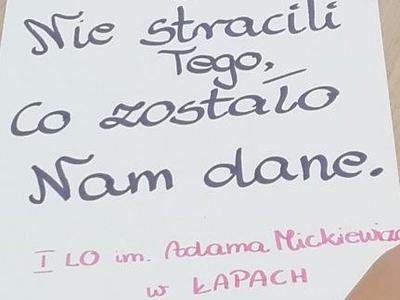 Nie stracili
Tego,
Co zostało
Nam dane.
I LO im. Adama Mickiewicza
w ŁAPACH